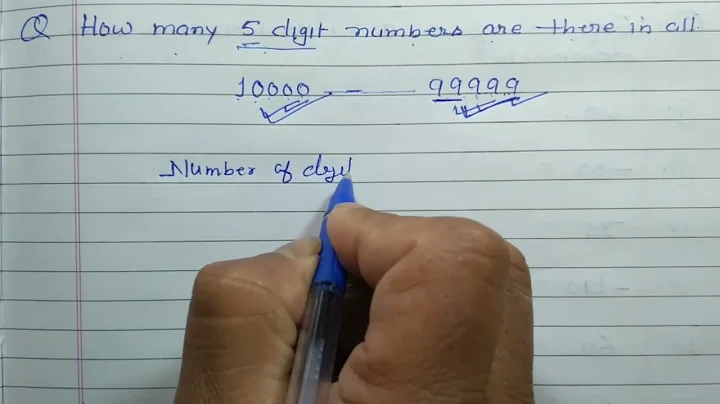 Q How many 5 digit numbers are there in all.
10000 - 99999
Number of digi